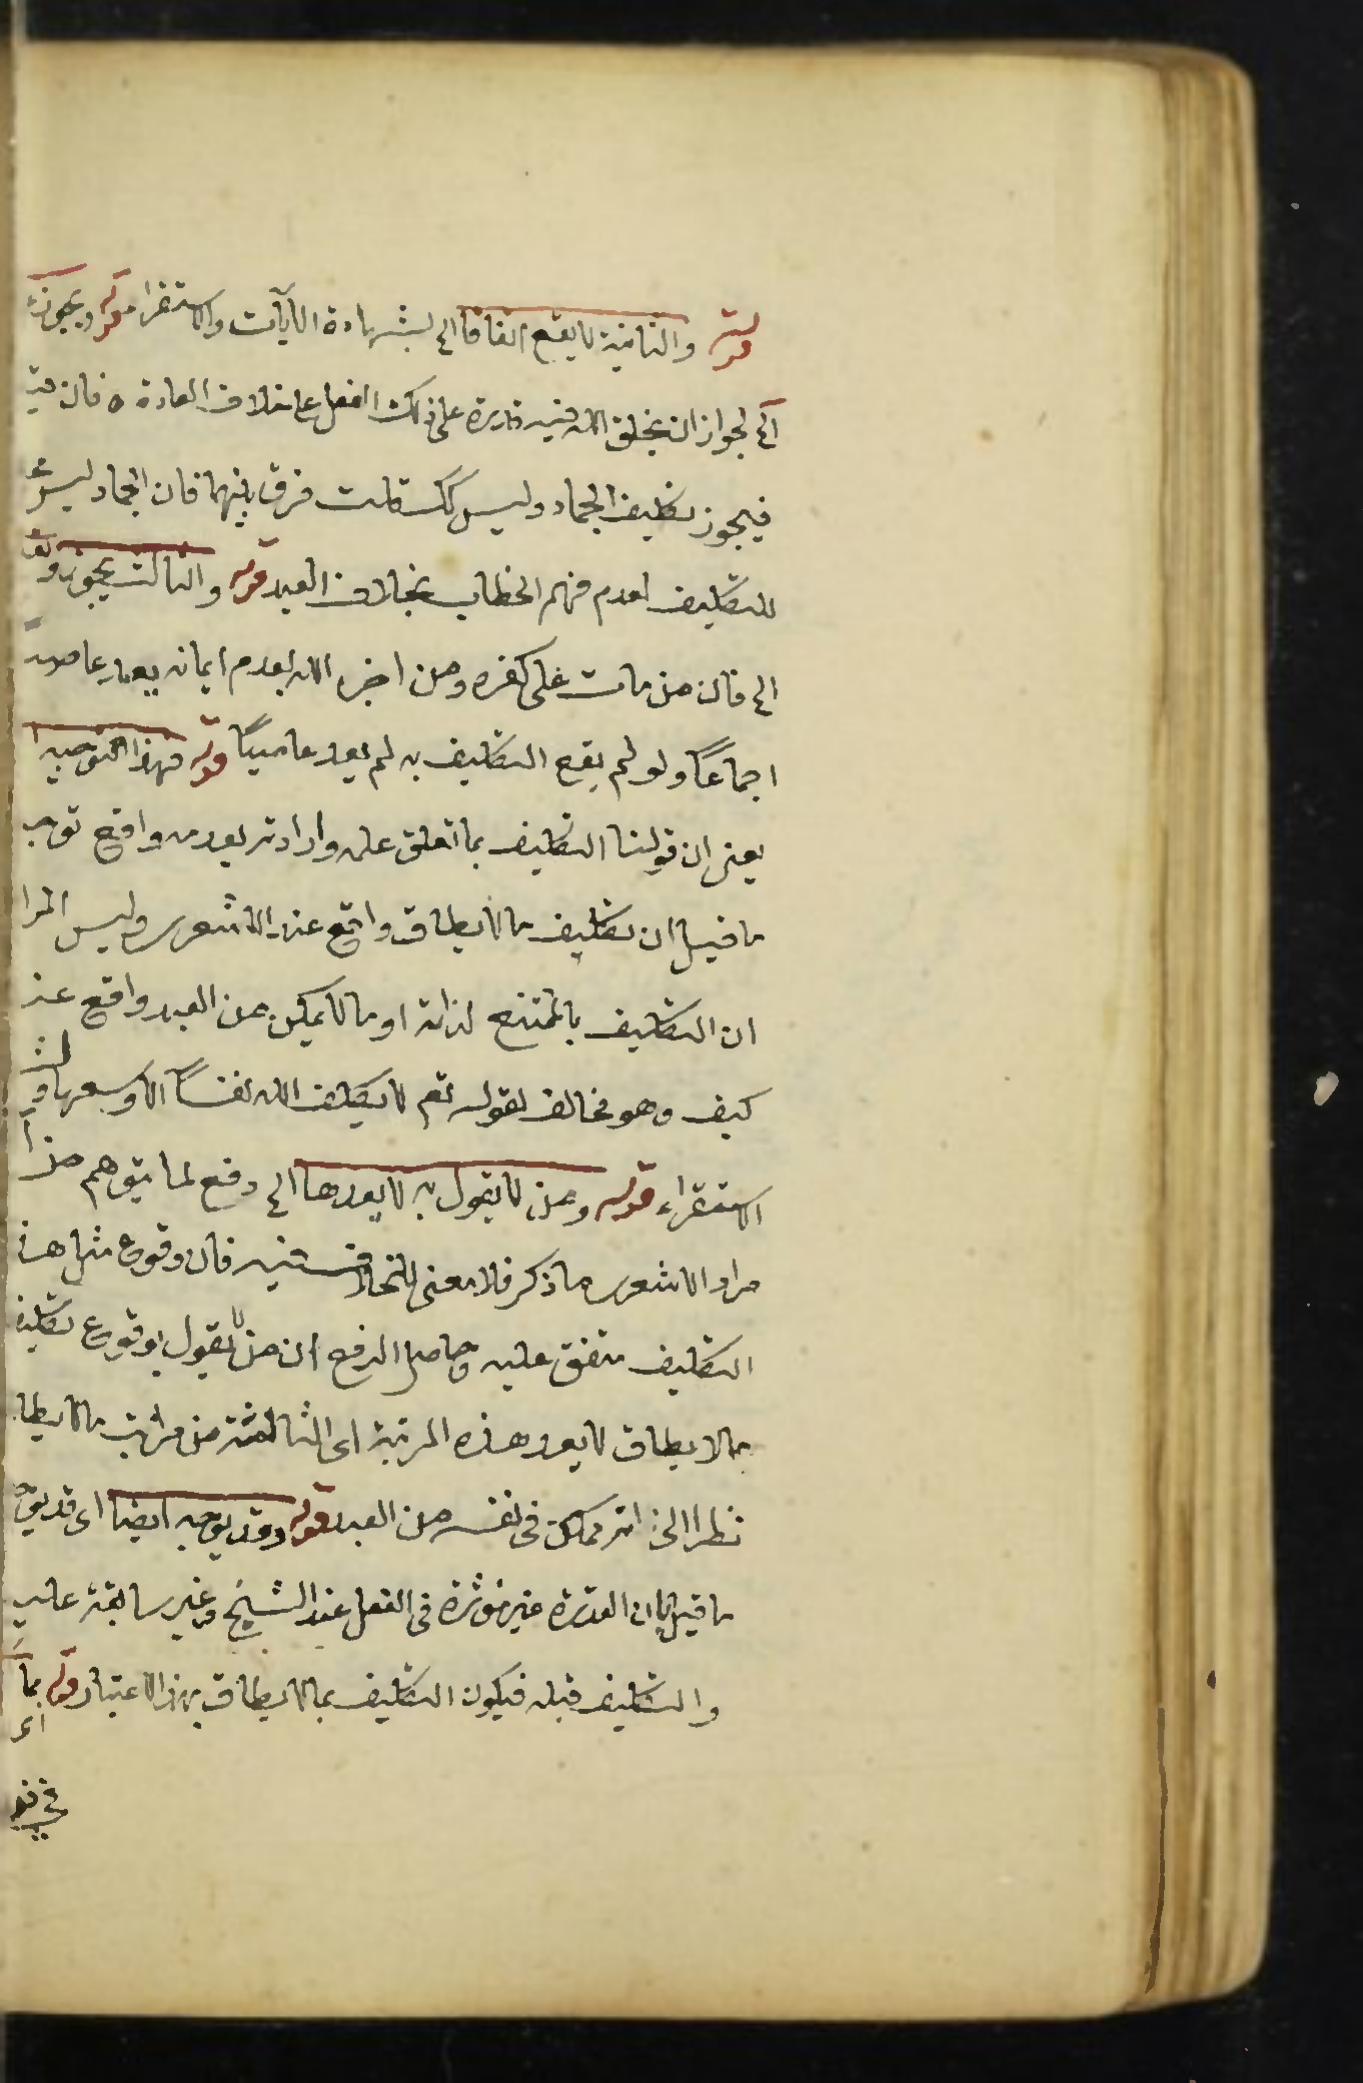 قوله والثانية لا يقع اتفاقا الى بشهادة الآيات والاستقراء قوله ويجوز عند
الى لجواز ان يخلق الله فيه قدرة على ذلك الفعل على خلاف العادة فان قيل
فيجوز تكليف الجماد وليس كك قلت فرق بينهما فان الجماد ليس
للتكليف لعدم فهم الخطاب بخلاف العبد قوله والثالث يجوز ويقع
الى فان من مات على كفره ومن اخبر الله بعدم ايمانه يعد عاصيا
اجماعاً ولو لم يقع التكليف به لم يعد عاصياً قوله فهذا التوجيه
يعنى ان قولنا التكليف بما تعلق علمه وارادته بعدمه واقع توجيه
ما قيل ان تكليف ما لا يطاق واقع عند الاشعرى وليس المرا
ان التكليف بالممتنع لذاته او ما لا يمكن من العبد واقع عند
كيف وهو مخالف لقوله تعم لا يكلف الله نفساً الا وسعها و
الاستقراء قوله ومن لا يقول به لا يعدها الى دفع لما يتوهم من ان
مراد الاشعرى ما ذكر فلا معنى للتخالف فيه فان وقوع مثل هذا
التكليف متفق عليه وحاصل الدفع ان من لا يقول بوقوع تكليف
ما لا يطاق لا يعد هذه المرتبة اى الثالثة من مراتب ما لا يطا
نظرا الى انه ممكن فى نفسه من العبد قوله وقد يوجه ايضا اى قد يوجه
ما قيل بان القدرة غير مؤثرة فى الفعل عند الشيخ وغير سابقة عليه
والتكليف قبله فيكون التكليف بما لا يطاق بهذا الاعتبار قوله بما
اى